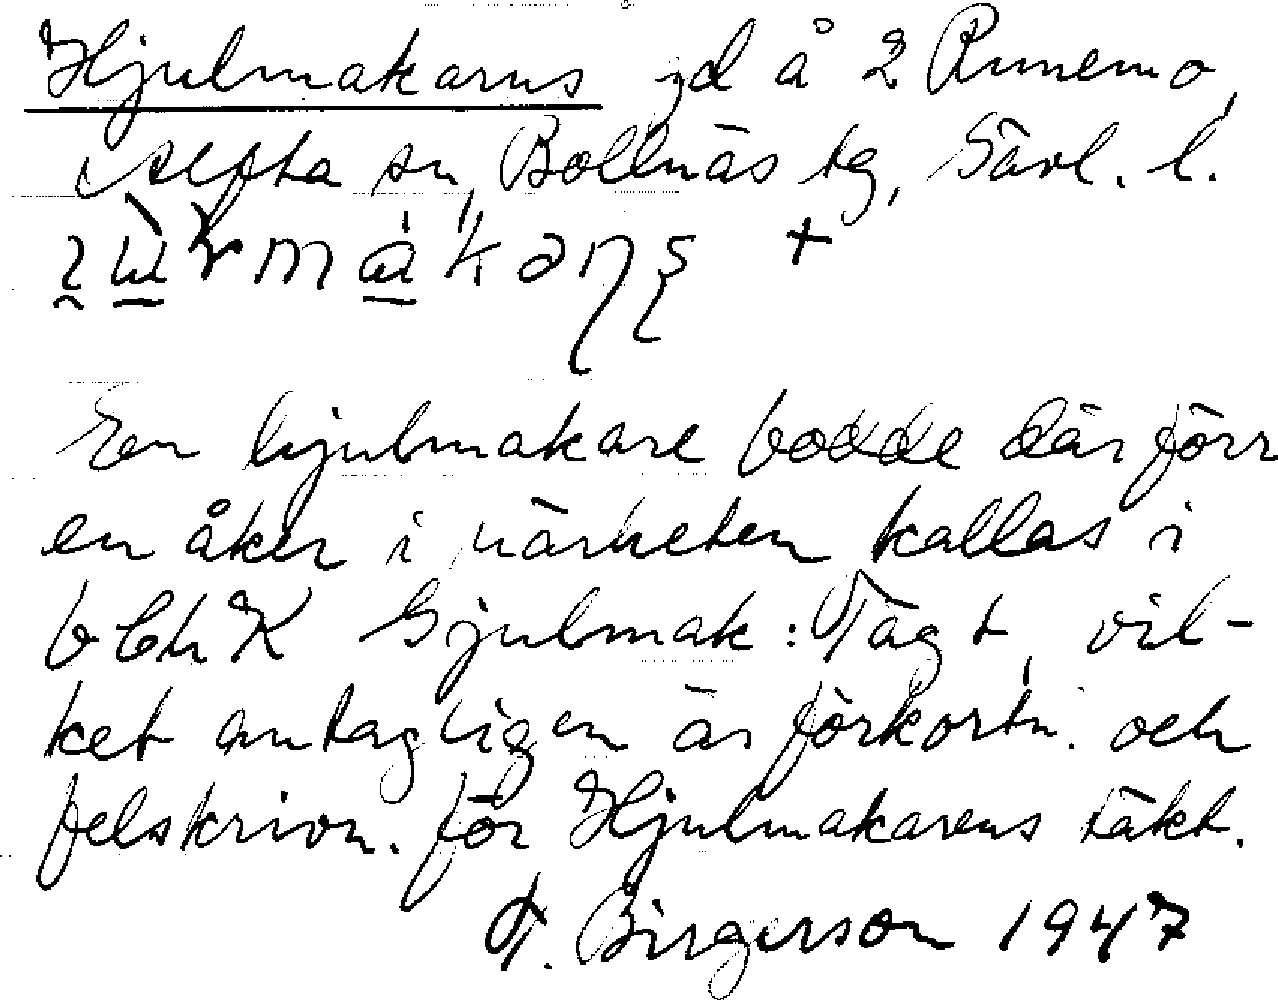 Hjulmakarns gd å 2 Runemo,
Alfta sn, Bollnäs tg, Gävl. l.
En hjulmakare bodde där förr
en åker i närheten kallas i
bChK Gjulmak: Tägt, vil-
ket antagligen är förkortn. och
felskrivn. för Hjulmakarens täkt.
T. Birgerson 1947